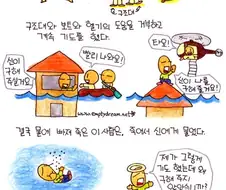 구조대
구조대와 보트와 헬기의 도움을 거부하고
계속 기도를 했다.
신이
구해
주실거요!
빨리 나와요!
타요!
신이 나를
구해 줄거요!
www.emptydream.net
결국 물에 빠져 죽은 이 사람은, 죽어서 신에게 물었다.
제가 그렇게
기도 했는데 왜
구해 주지
않았습니까?